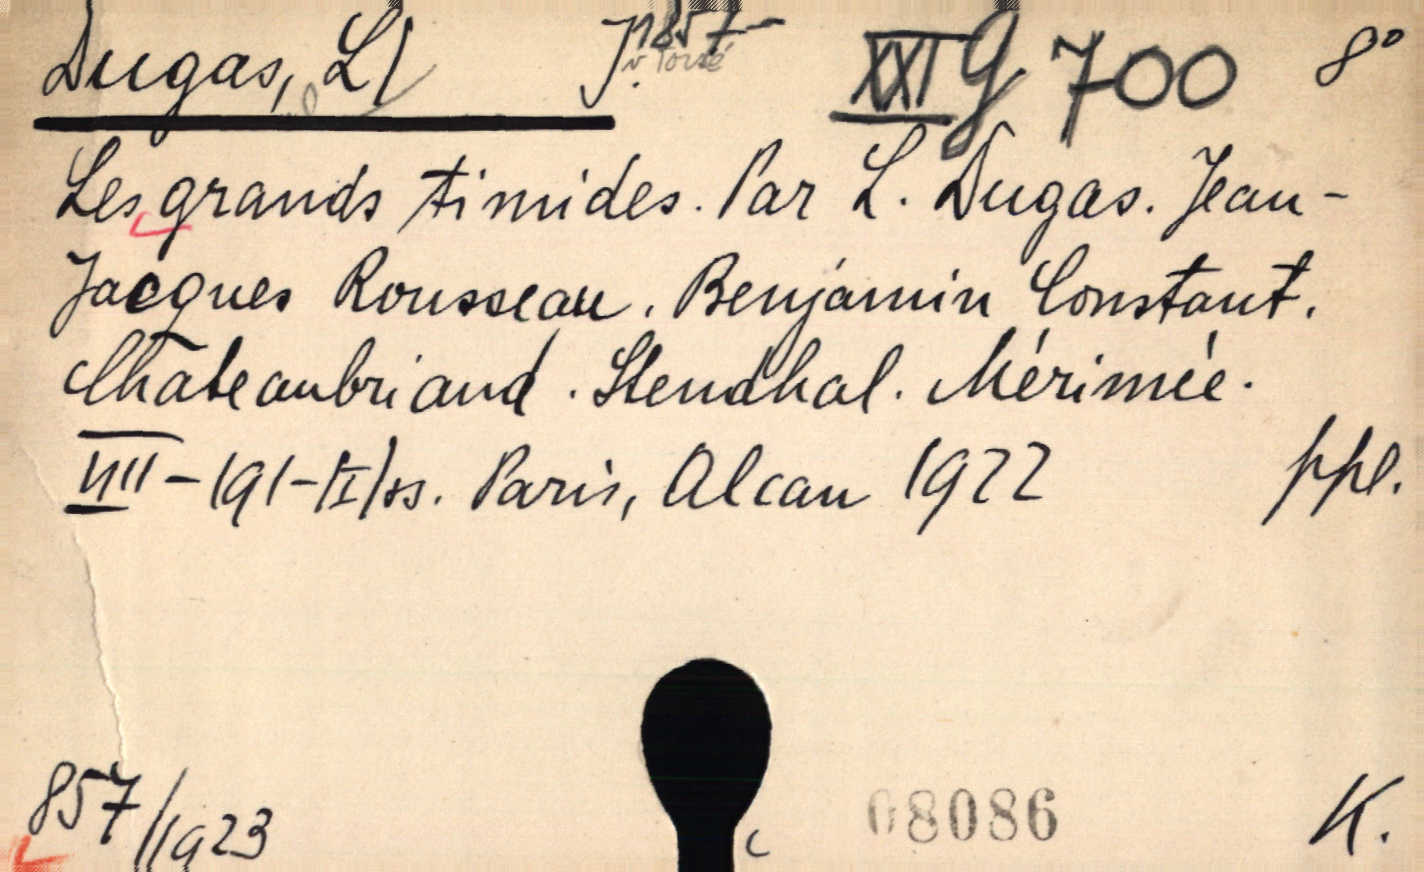 Dugas, L/ J. 1857- XXI g 700 8°
Les grands timides. Par L. Dugas. Jean-
Jacques Rousseau. Benjamin Constant.
Chateaubriand. Stendhal. Mérimée.
VIII-191-/I/ss. Paris, Alcan 1922 ppl.
857/1923 08086 K.